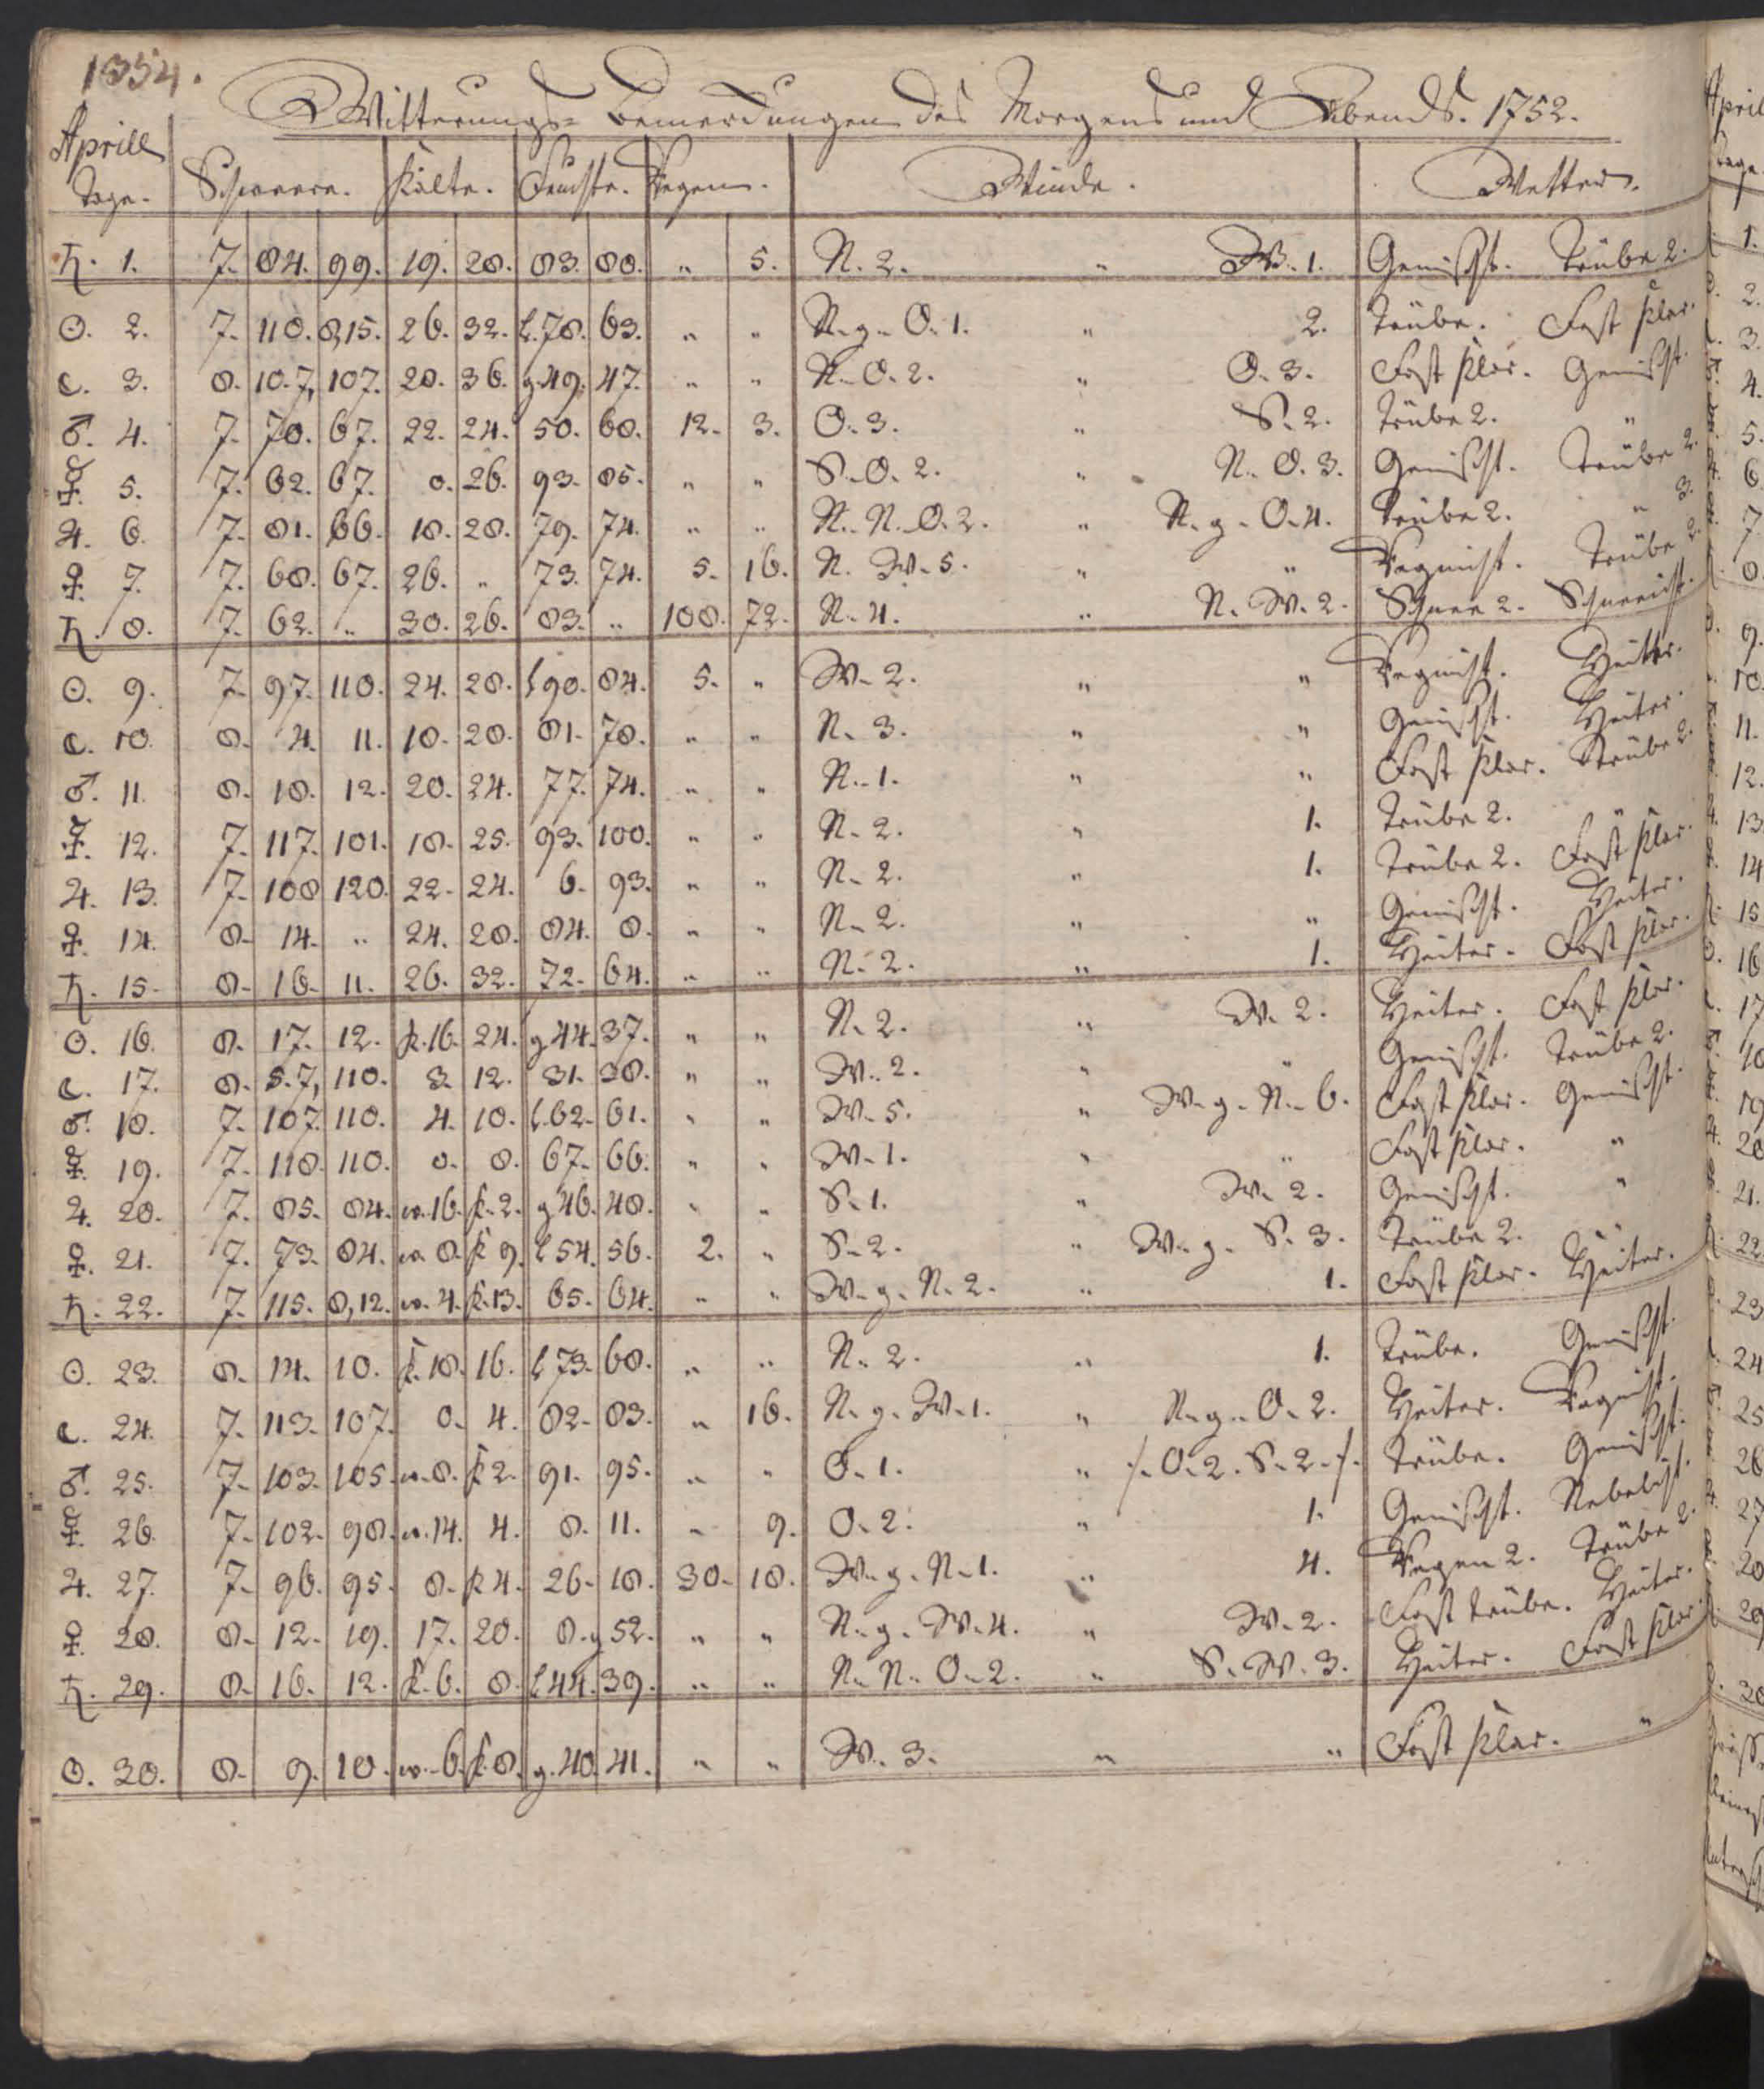 1854.
Witterungs-Bemerckungen des Morgens und Abends. 1752.
Aprill
Tage. Schwere. Kälte. Feuchte. Regen. Winde. Wetter.
♄. 1. 7. 84. 99. 19. 28. 83. 80. " 5. N. 2. " W. 1. Gemischt. Trübe 2.
☉. 2. 7. 110. 8,15. 26. 32. t. 78. 63. " " N. g. O. 1. " 2. Trübe. Fast klar.
☾. 3. 8. 10. 7, 107. 28. 36. g. 49. 47. " " N. O. 2. " O. 3. Fast klar. Gemischt.
♂. 4. 7. 70. 67. 22. 24. 50. 60. 12. 3. O. 3. " S. 2. Trübe 2. "
☿. 5. 7. 62. 67. 0. 26. 93. 85. " " S. O. 2. " N. O. 3. Gemischt. Trübe 2.
♃. 6. 7. 81. 66. 18. 28. 79. 74. " " N. N. O. 2. " N. g. O. 4. Trübe 2. " 3.
♀. 7. 7. 68. 67. 26. " 73. 74. 5. 16. N. W. 5. " " Regnicht. Trübe 2.
♄. 8. 7. 62. " 30. 26. 83. " 108. 72. N. 4. " N. W. 2. Schnee 2. Schneeicht.
☉. 9. 7. 97. 110. 24. 28. t 90. 84. 5. " W. 2. " " Regnicht. Heiter.
☾. 10. 8. 4. 11. 18. 20. 81. 78. " " N. 3. " " Gemischt. Heiter.
♂. 11. 8. 18. 12. 20. 24. 77. 74. " " N. 1. " " Fast klar. Trübe 2.
☿. 12. 7. 117. 101. 18. 25. 93. 100. " " N. 2. " 1. Trübe 2. "
♃. 13. 7. 108 120. 22. 24. 6. 93. " " N. 2. " 1. Trübe 2. Fast klar.
♀. 14. 8. 14. " 24. 28. 84. 8. " " N. 2. " " Gemischt. Heiter.
♄. 15. 8. 16. 11. 26. 32. 72. 64. " " N. 2. " 1. Heiter. Fast klar.
☉. 16. 8. 17. 12. k. 16. 24. g 44. 37. " " N. 2. " W. 2. Heiter. Fast klar.
☾. 17. 8. 5. 7, 110. 3. 12. 31. 38. " " W. 2. " " Gemischt. Trübe 2.
♂. 18. 7. 107. 110. 4. 10. t. 62. 61. " " W. 5. " W. g. N. 6. Fast klar. Gemischt.
☿. 19. 7. 118. 110. 0. 8. 67. 66. " " W. 1. " " Fast klar. "
♃. 20. 7. 85. 84. w. 16. k. 2. g 46. 48. " " S. 1. " W. 2. Gemischt. "
♀. 21. 7. 73. 84. w. 8. k 9. t 54. 56. 2. " S. 2. " W. g. S. 3. Trübe 2. "
♄. 22. 7. 115. 8,12. w. 4. k. 13. 65. 64. " " W. g. N. 2. " 1. Fast klar. Heiter.
☉. 23. 8. 14. 10. k. 18. 16. t 73. 68. " " N. 2. " 1. Trübe. Gemischt.
☾. 24. 7. 113. 107. 0. 4. 82. 83. " 16. N. g. W. 1. " N. g. O. 2. Heiter. Regnicht.
♂. 25. 7. 103. 105. w. 8. k 2. 91. 95. " " O. 1. " /. O. 2. S. 2. /. Trübe. Gemischt.
☿. 26. 7. 102. 98. w. 14. 4. 8. 11. " 9. O. 2. " 1. Gemischt. Nebelicht.
♃. 27. 7. 96. 95. 8. k 4. 26. 18. 30. 18. W. g. N. 1. " 4. Regen 2. Trübe 2.
♀. 28. 8. 12. 19. 17. 20. 8. g 52. " " N. g. W. 4. " W. 2. Fast trübe. Heiter.
♄. 29. 8. 16. 12. k. 6. 8. t 44. 39. " " N. N. O. 2. " S. W. 3. Heiter. Fast klar.
☉. 30. 8. 9. 10. w. 6. k. 8. g. 40. 41. " " W. 3. " " Fast klar. "